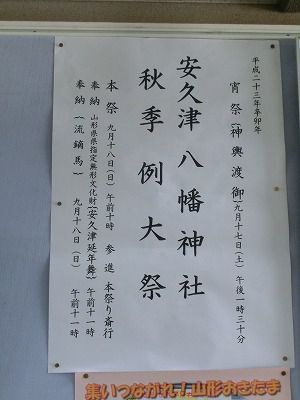 平成二十三年辛卯年
宵祭(神輿渡御)九月十七日(土)午後一時三十分
安久津八幡神社
秋季例大祭
本祭 九月十八日(日)午前十時 参進 本祭り斎行
奉納 山形県県指定無形文化財(安久津延年舞) 午前十一時
奉納 (流鏑馬) 九月十八日(日) 午前十一時
集いつながれ!山形おきたま